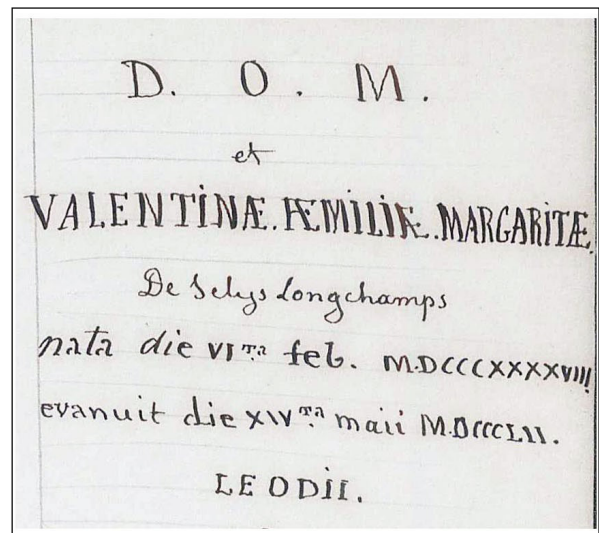 D. O. M.
et
VALENTINÆ. ÆMILIÆ. MARGARITÆ.
De Selys Longchamps
nata die VI.ta feb. M.DCCCXXXXVIII
evanuit die XIV.ta maii M.DCCCLII.
LEODII.